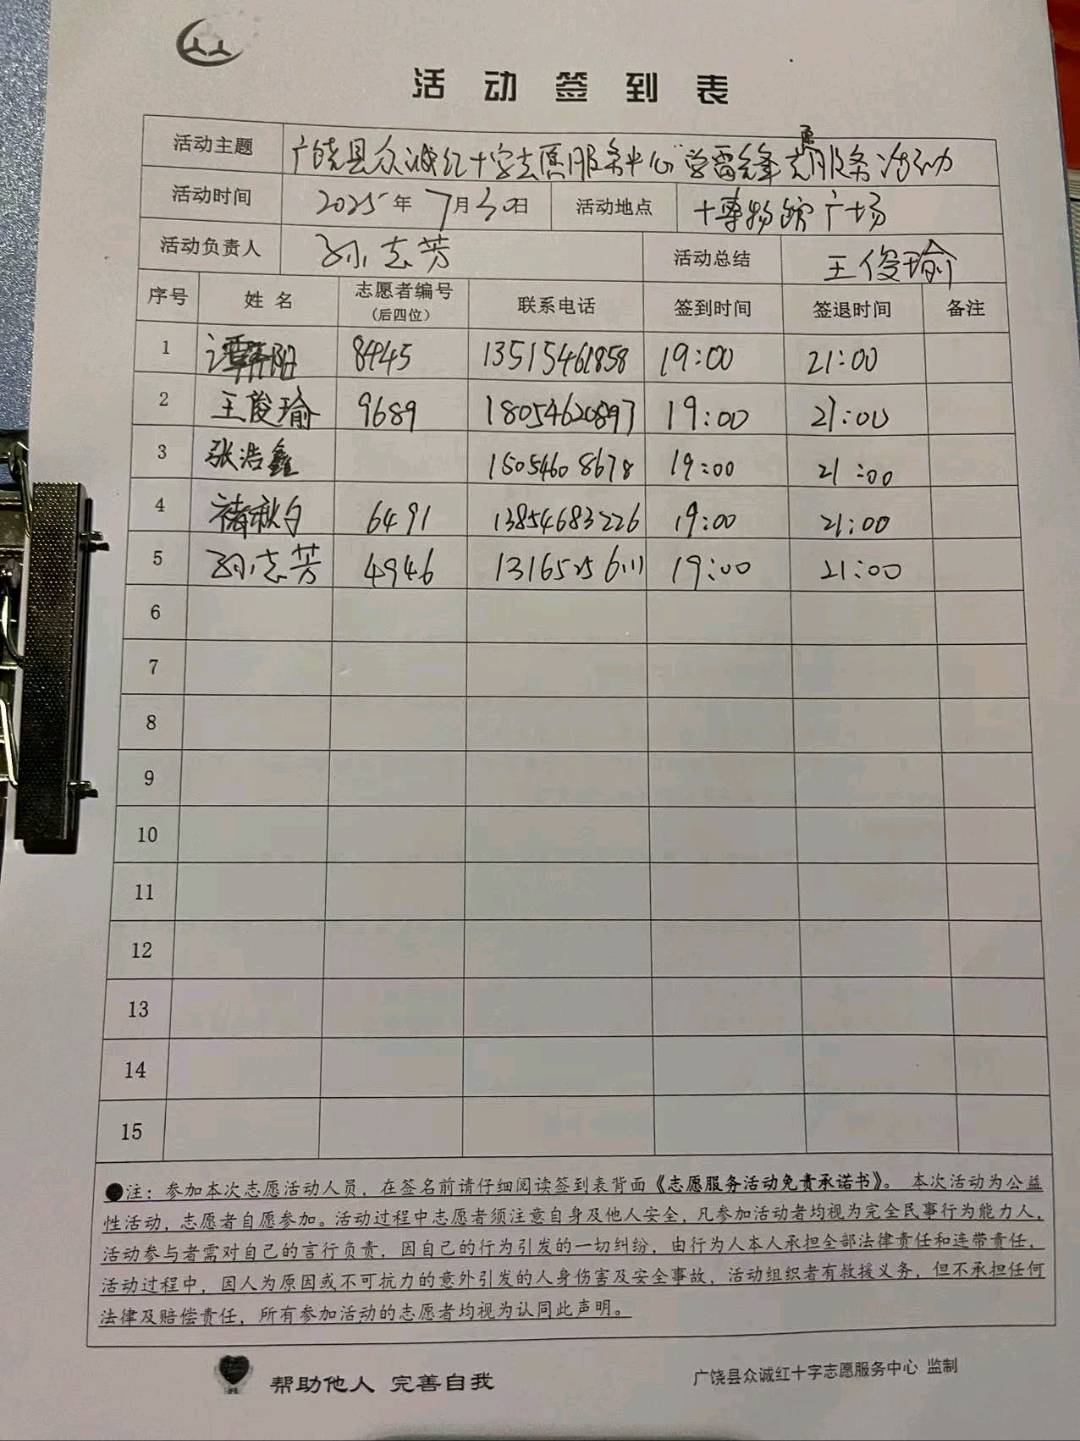 活动签到表
活动主题 广饶县众诚红十字志愿服务中心"学雷锋志愿服务活动
活动时间 2025年7月30日 活动地点 十博物馆广场
活动负责人 孙志芳 活动总结 王俊瑜
序号 姓名 志愿者编号（后四位） 联系电话 签到时间 签退时间 备注
1 8445 13515461858 19:00 21:00
2 王俊瑜 9689 18054620897 19:00 21:00
3 张浩鑫 15054608678 19:00 21:00
4 褚秋夕 6491 13854683226 19:00 21:00
5 孙志芳 4946 13165256111 19:00 21:00
6
7
8
9
10
11
12
13
14
15
●注：参加本次志愿活动人员，在签名前请仔细阅读签到表背面《志愿服务活动免责承诺书》。 本次活动为公益
性活动，志愿者自愿参加。活动过程中志愿者须注意自身及他人安全，凡参加活动者均视为完全民事行为能力人，
活动参与者需对自己的言行负责，因自己的行为引发的一切纠纷，由行为人本人承担全部法律责任和连带责任，
活动过程中，因人为原因或不可抗力的意外引发的人身伤害及安全事故，活动组织者有救援义务，但不承担任何
法律及赔偿责任，所有参加活动的志愿者均视为认同此声明。
帮助他人 完善自我 广饶县众诚红十字志愿服务中心 监制